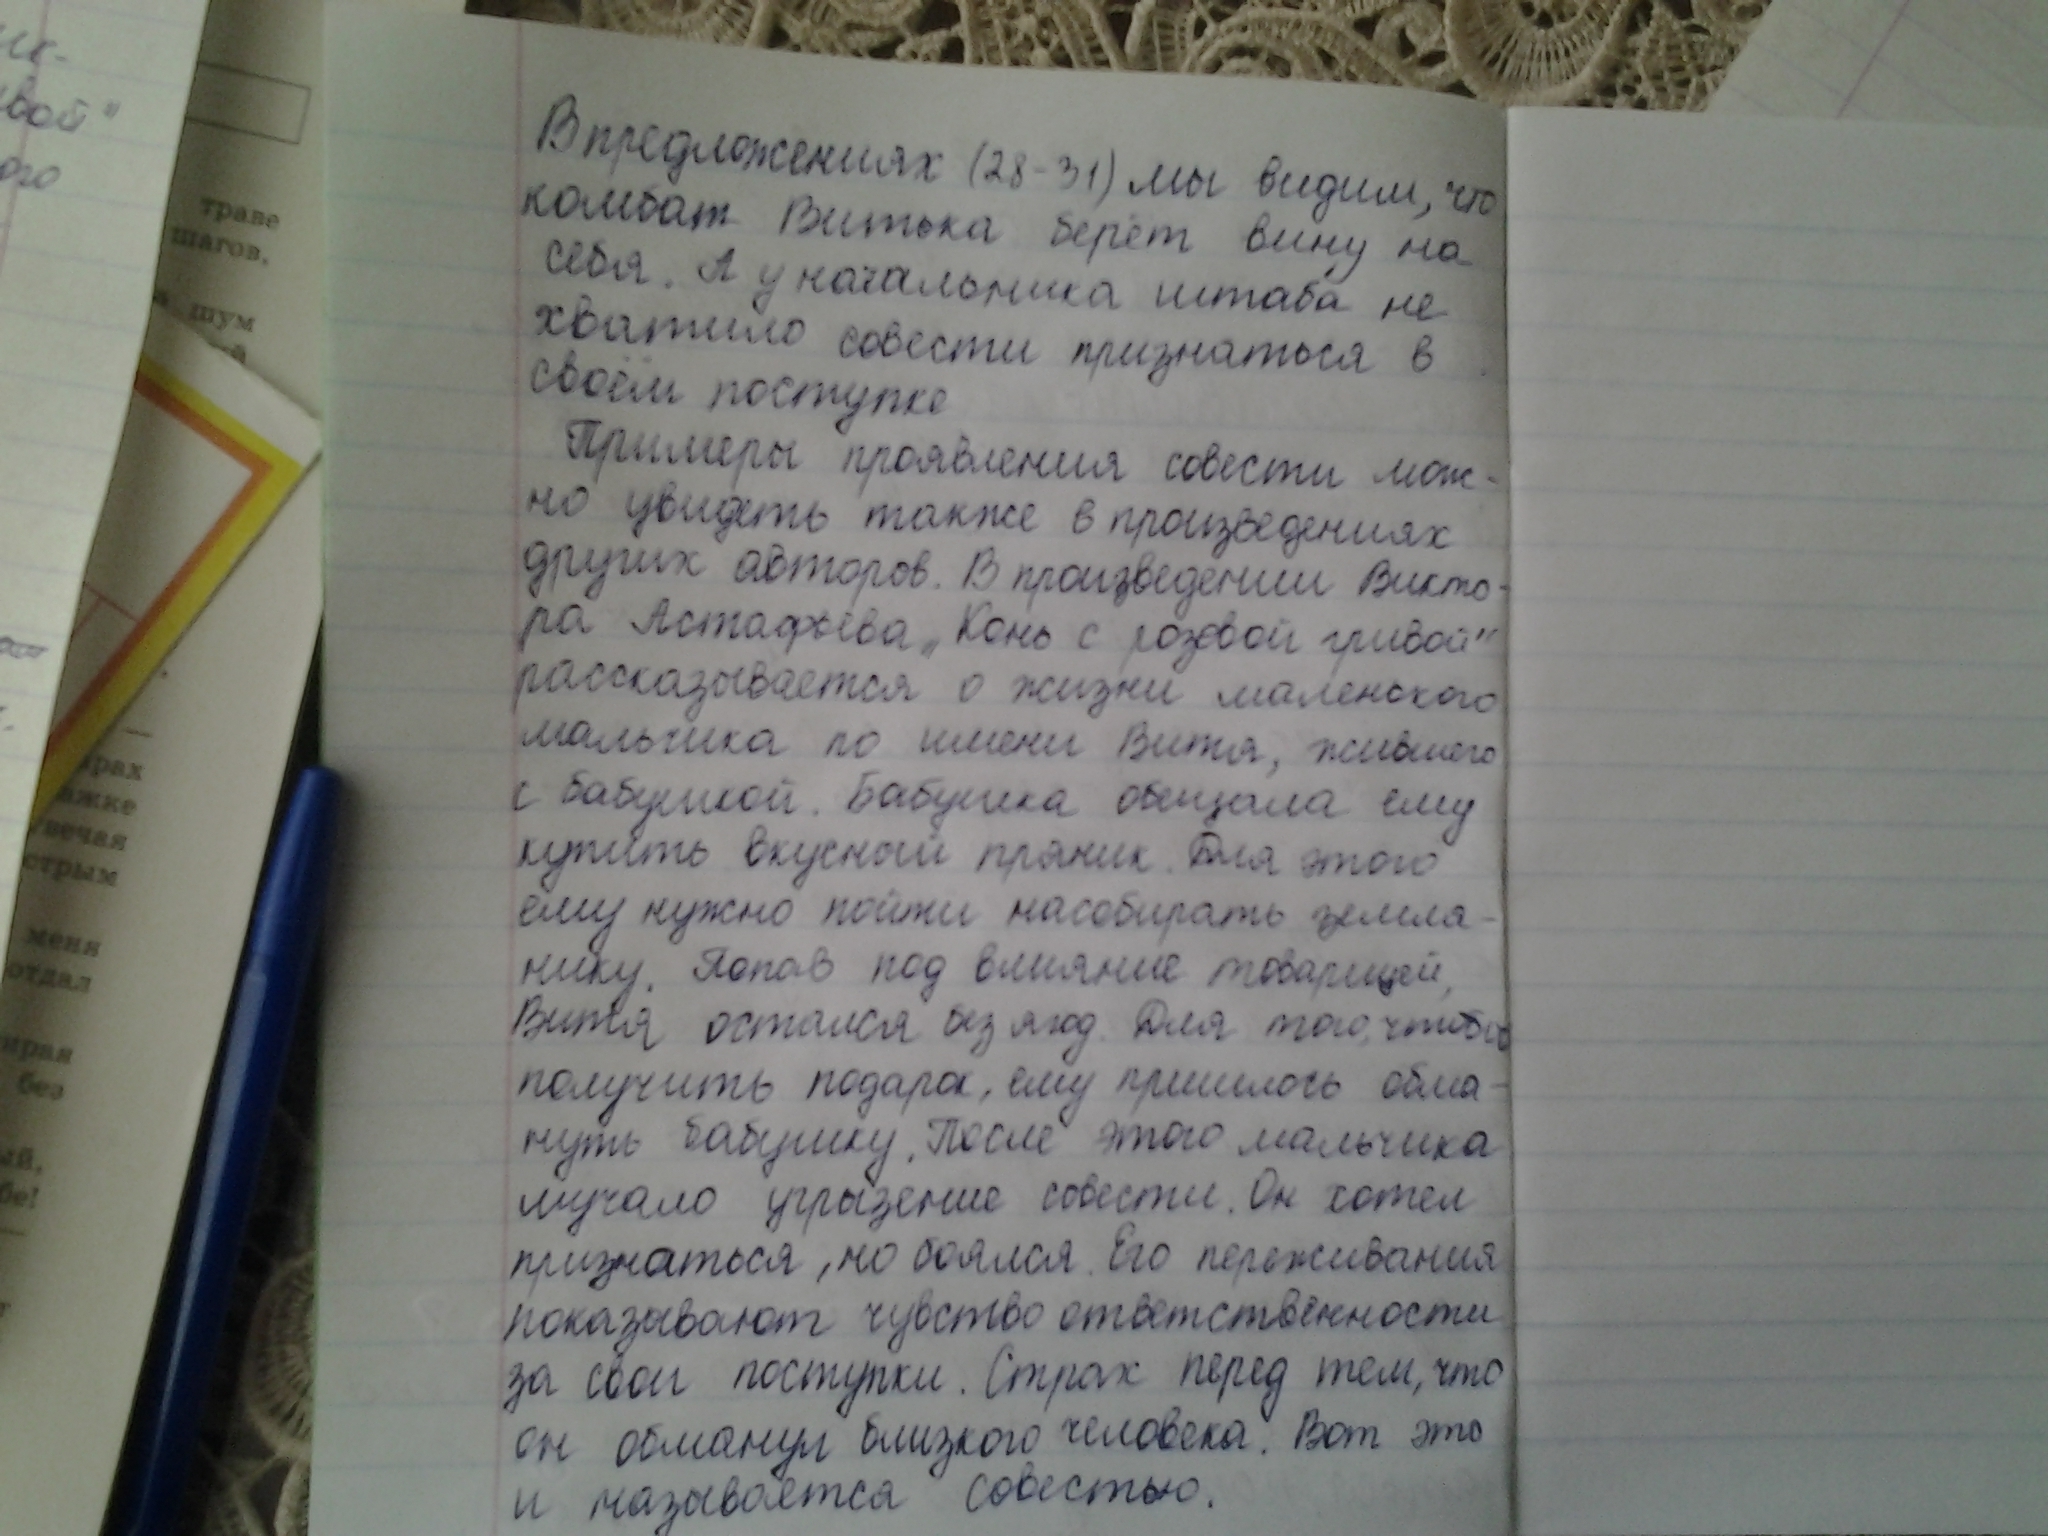 ик-
ивой"
ого
траве
шагов.
шум
В предложениях (28-31) мы видим, что
комбат Витька берёт вину на
себя. А у начальника штаба не
хватило совести признаться в
своём поступке
Примеры проявления совести мож-
но увидеть также в произведениях
других авторов. В произведении Викто-
ра Астафьева „Конь с розовой гривой"
рассказывается о жизни маленького
мальчика по имени Витя, жившего
с бабушкой. Бабушка обещала ему
купить вкусный пряник. Для этого
ему нужно пойти насобирать земля-
нику. Попав под влияние товарищей,
Витя остался без ягод. Для того, чтобы
получить подарок, ему пришлось обма-
нуть бабушку. После этого мальчика
мучало угрызение совести. Он хотел
признаться, но боялся. Его переживания
показывают чувство ответственности
за свои поступки. Страх перед тем, что
он обманул близкого человека. Вот это
и называется совестью.
ажке
вечая
стрым
меня
отдал
ирая
без
ый,
бе!